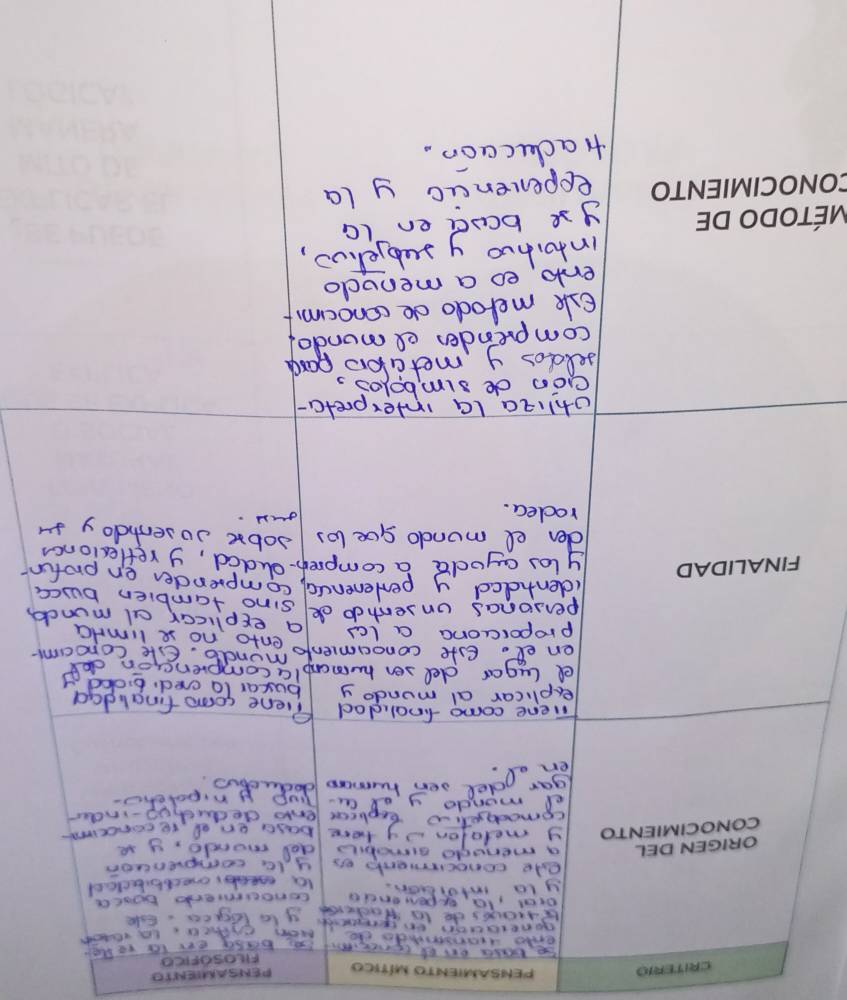 CRITERIO
PENSAMIENTO MÍTICO
PENSAMIENTO
FILOSÓFICO
ORIGEN DEL
CONOCIMIENTO
Se basa en el conocimi-
ento transmitido de
generacion en generación
a traves de la tradición
oral, la experiencia
y la intuición.
Este conocimiento es
a menudo simbolico
y metafori y tiene
como objetivo explicar
el mundo y el lu-
gar del ser humano
en el.
Se basa en la refle-
xion critica, la razon
y la lógica. Este
conocimiento busca
la credibilidad
y la comprencion
del mundo, y se
basa en el reconocimi-
ento deductivo-induc-
tivo y hipotetico-
deductivo.
FINALIDAD
Tiene como finalidad
explicar al mundo y
el lugar del ser humano
en el. Este conocimiento
proporciona a las
personas un sentido de
identidad y pertenencia,
y los ayuda a compren-
der el mundo que los
rodea.
Tiene como finalidad
buscar la credibilidad y
la comprencion del
mundo. Este conocimi-
ento no se limita
a explicar al mundo,
sino tambien busca
comprender en profun-
didad, y reflexionar
sobre su sentido y su
MÉTODO DE
CONOCIMIENTO
Utiliza la interpreta-
ción de simbolos,
relatos y metaforas para
comprender el mundo.
Este metodo de conocimi-
ento es a menudo
intuitivo y subjetivo,
y se basa en la
experiencia y la
tradiccion.